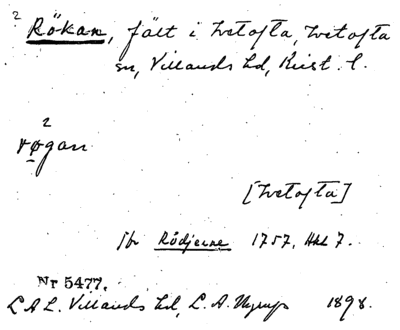 ? Rökan, fält i Ivetofta, Ivetofta
sn, Villands hd, Krist. l.
2
røgan
[Ivetofta]
jfr Rödjerne 1757, Akt 7.
Nr 5477.
LAL. Villands hd, L. A. Nyrup 1898.